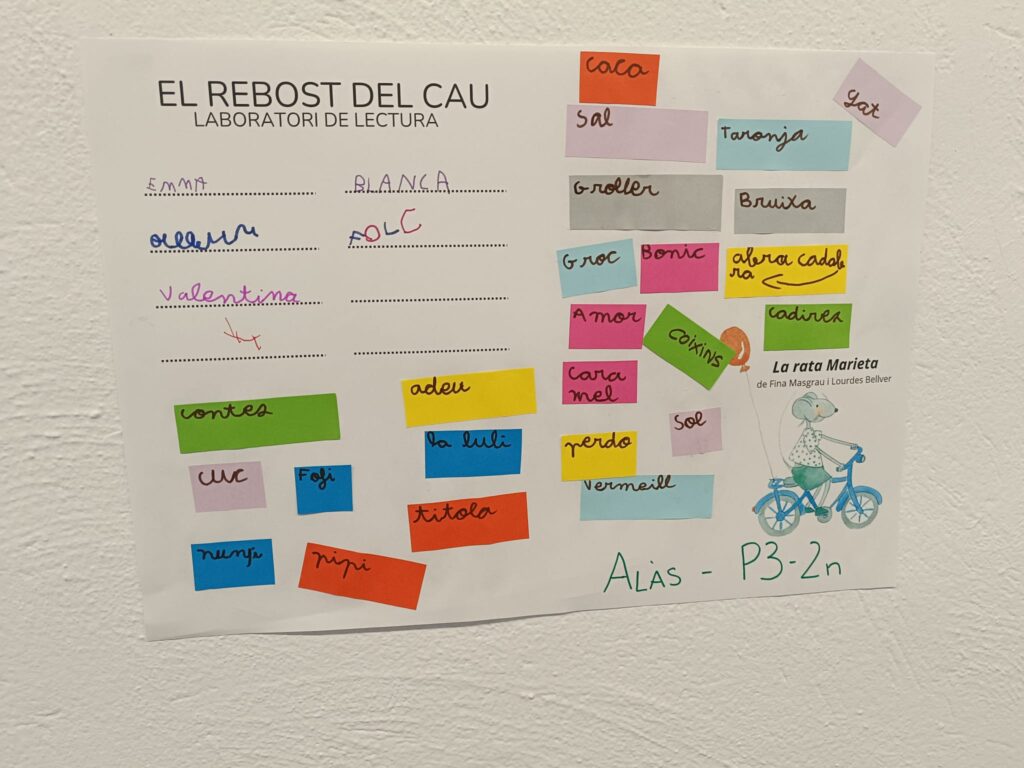 EL REBOST DEL CAU
LABORATORI DE LECTURA
EMMA
BLANCA
FOLC
Valentina
caca
gat
Sal
Taronja
Groller
Bruixa
Groc
Bonic
abra cadab
ra
Amor
COIXINS
cadires
Cara
mel
La rata Marieta
de Fina Masgrau i Lourdes Bellver
contes
adeu
Sol
la luli
perdo
cuc
Fofi
Vermeill
titola
pipi
ALÀS - P3-2n